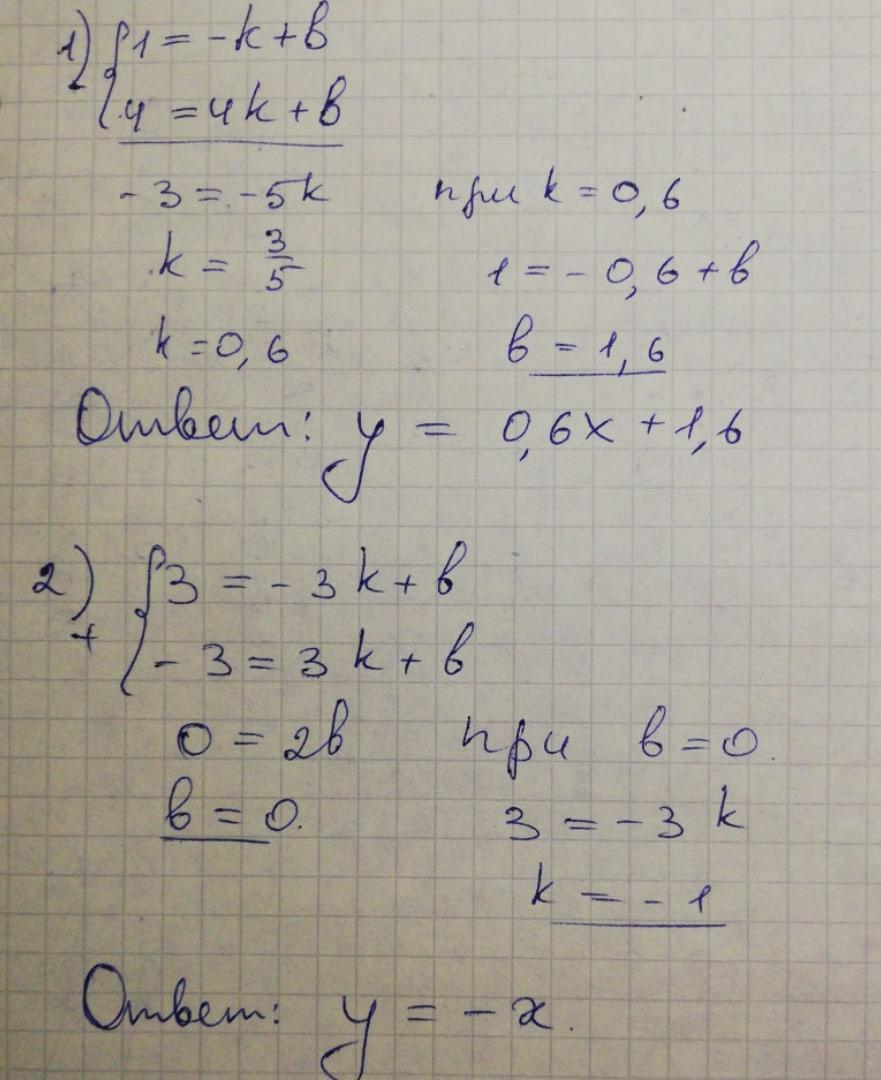 1) { 1 = -k + b
- 4 = 4k + b
-3 = -5k при k = 0,6
k = 3/5 1 = -0,6 + b
k = 0,6 b = 1,6
Ответ: y = 0,6x + 1,6
2) { 3 = -3k + b
+ -3 = 3k + b
0 = 2b при b = 0.
b = 0. 3 = -3k
k = -1
Ответ: y = -x.